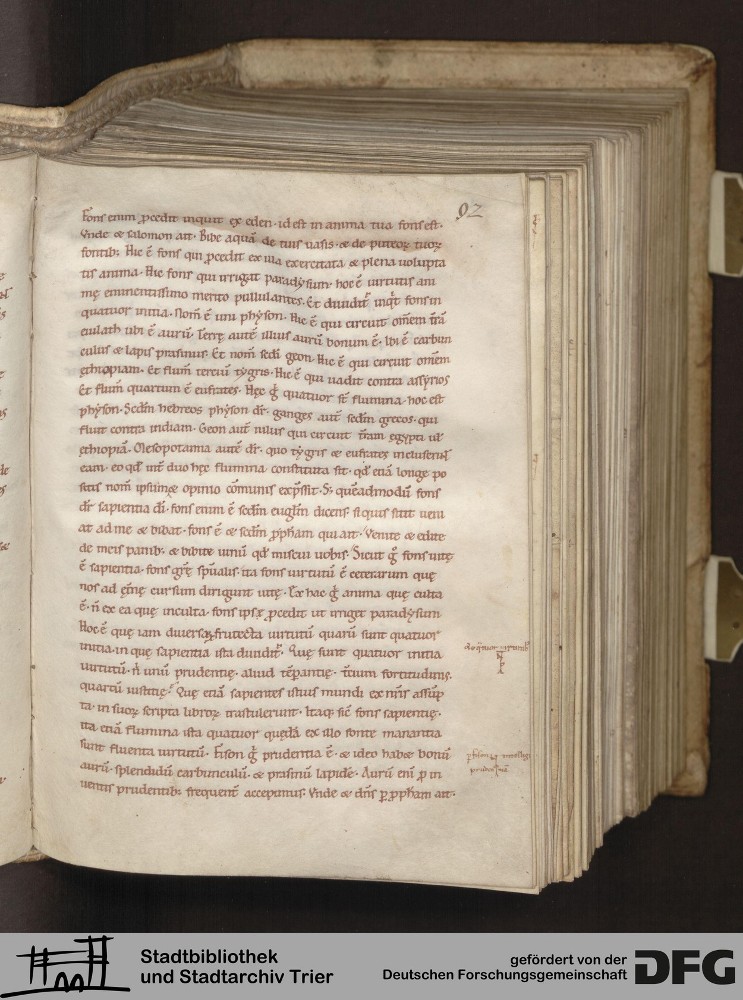 92
Fons enim ꝓcedit inquit ex eden · id est in anima tua fons est ·
Vnde & salomon ait · Bibe aquā de tuis uasis · & de puteoꝝ tuoꝝ
fontib; Hic ē fons qui ꝓcedit ex illa exercitata & plena uolupta
tis anima · Hic fons qui irrigat paradysum · hoc ē uirtutis ani
mę eminentissimo merito pullulantes · Et diuidit᷑ inq̇t fons in
quatuor initia · Nom̄ ē uni physon · Hic ē qui circuit om̄em t̄rā
euilath ubi ē aurū · Terrę autē illius aurū bonum ē · Ibi ē carbun
culus & lapis prasinus · Et nom̄ sc̄di geon · Hic ē qui circuit om̄em
ęthiopiam · Et flum̄ terciū tygris · Hic ē qui uadit contra assyrios
Et flum̄ quartum ē eufrates · Hęc g̊ quatuor st̄ flumina · hoc est
physon · Scd̄m hebreos physon dr̄ · ganges aut̄ sed̄m grecos · qui
fluit contra indiam · Geon aut̄ nilus qui circuit t̄ram ęgypti ut̄
ęthiopiā · Mesopotamia autē dr̄ · quo tygris & eufrates
eam · eo qd̄ int̄ duo hęc flumina constituta sit · qd̄ etiā longe po
sitis nom̄ ipsumq; opinio cōmunis exp̄ssit · S; quēadmodū fons
dr̄ sapientia dī · fons enim ē scd̄m eugl̄m dicens · si quis sitit ueni
at ad me & bibat · fons ē & scd̄m ꝓph̄am qui ait · Venite & edite
de meis panib; & bibite uinū qd̄ miscui uobis · Sicut g̊ fons uitę
ē sapientia · fons gr̄ę sp̄ualis · ita fons uirtutū ē ceterarum quę
nos ad et̄nę cursum dirigunt uitę · Ex hac g̊ anima quę culta
ē · n̄ ex ea quę inculta · fons ipse ꝓcedit ut irriget paradysum
Hoc ē quę iam diuersa frutecta uirtutū quarū sunt quatuor
initia · in quę sapientia ista diuidit᷑ · Quę sunt quatuor initia
uirtutū · n̄ unū prudentię · aliud tēpantię · t̄cium fortitudinis ·
quartū iustitię · Quę etiā sapientes istius mundi ex nr̄is assūp
ta · in suoꝝ scripta libroꝝ transtulerunt · Itaq; sic̄ fons sapientię ·
ita etiā flumina ista quatuor quędā ex illo fonte manantia
sunt fluenta uirtutū · Fison g̊ prudentia ē · & ideo habet bonū
aurū · splendidū carbunculū · & prasinū lapidē · Aurū eni ꝓ in
uentis prudentib; frequent̄ accepimus · Vnde & dn̄s p ꝓph̄am ait ·
Stadtbibliothek
und Stadtarchiv Trier
gefördert von der
Deutschen Forschungsgemeinschaft
DFG